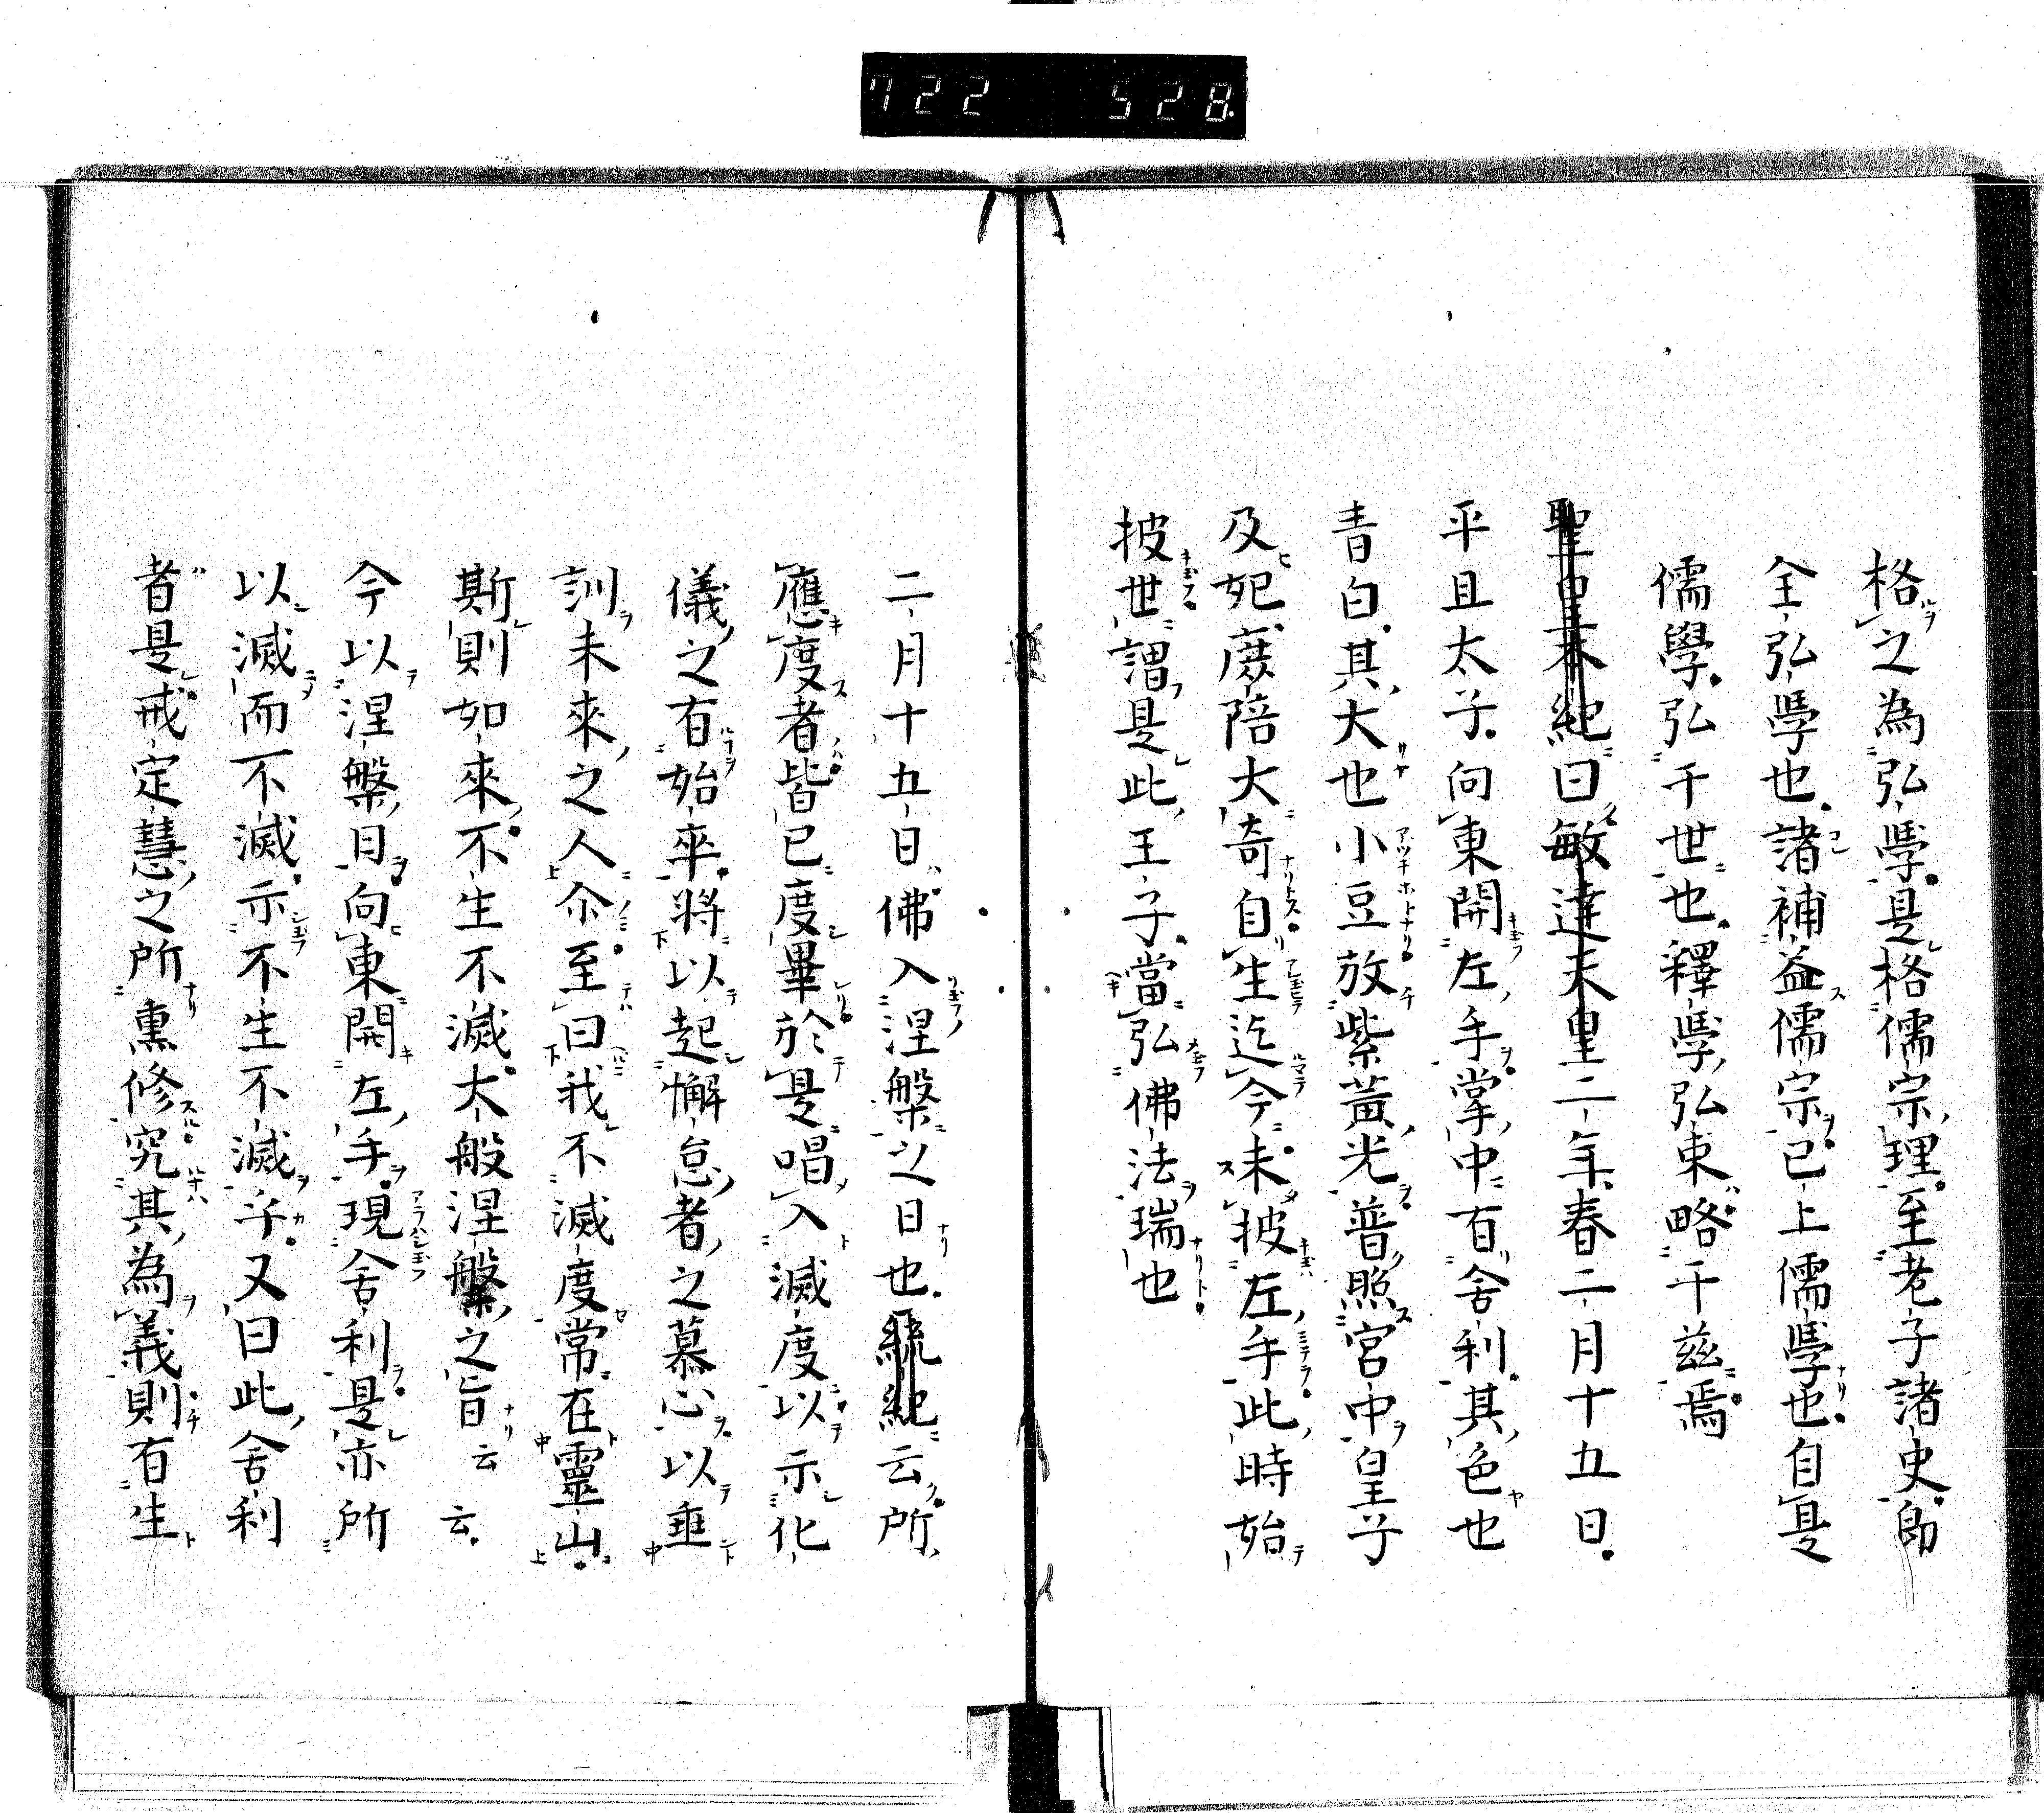 722 528
格之為弘學是格儒宗理至老子諸史即
全弘學也諸補益儒宗已上儒學也自是
儒學弘千世也釋學弘東略千茲焉
聖皇本紀曰敏達天皇二年春二月十五日
平旦太子向東開左手掌中有舍利其色也
青白其大也小豆放紫黃光普照宮中皇子
及妃庶陪大奇自生迄今未披左手此時始
披世謂是此王子當弘佛法瑞也
二月十五日佛入涅槃之日也統紀云所
應度者皆已度畢於是唱入滅度以示化
儀之有始卒將以起懈怠者之慕心以垂
訓未來之人尒至曰我不滅度常在靈山
斯則如來不生不滅大般涅槃之旨云云
今以涅槃日向東開左手現舍利是亦所
以滅而不滅示不生不滅乎又曰此舍利
者是戒定慧之所熏修究其為義則有生